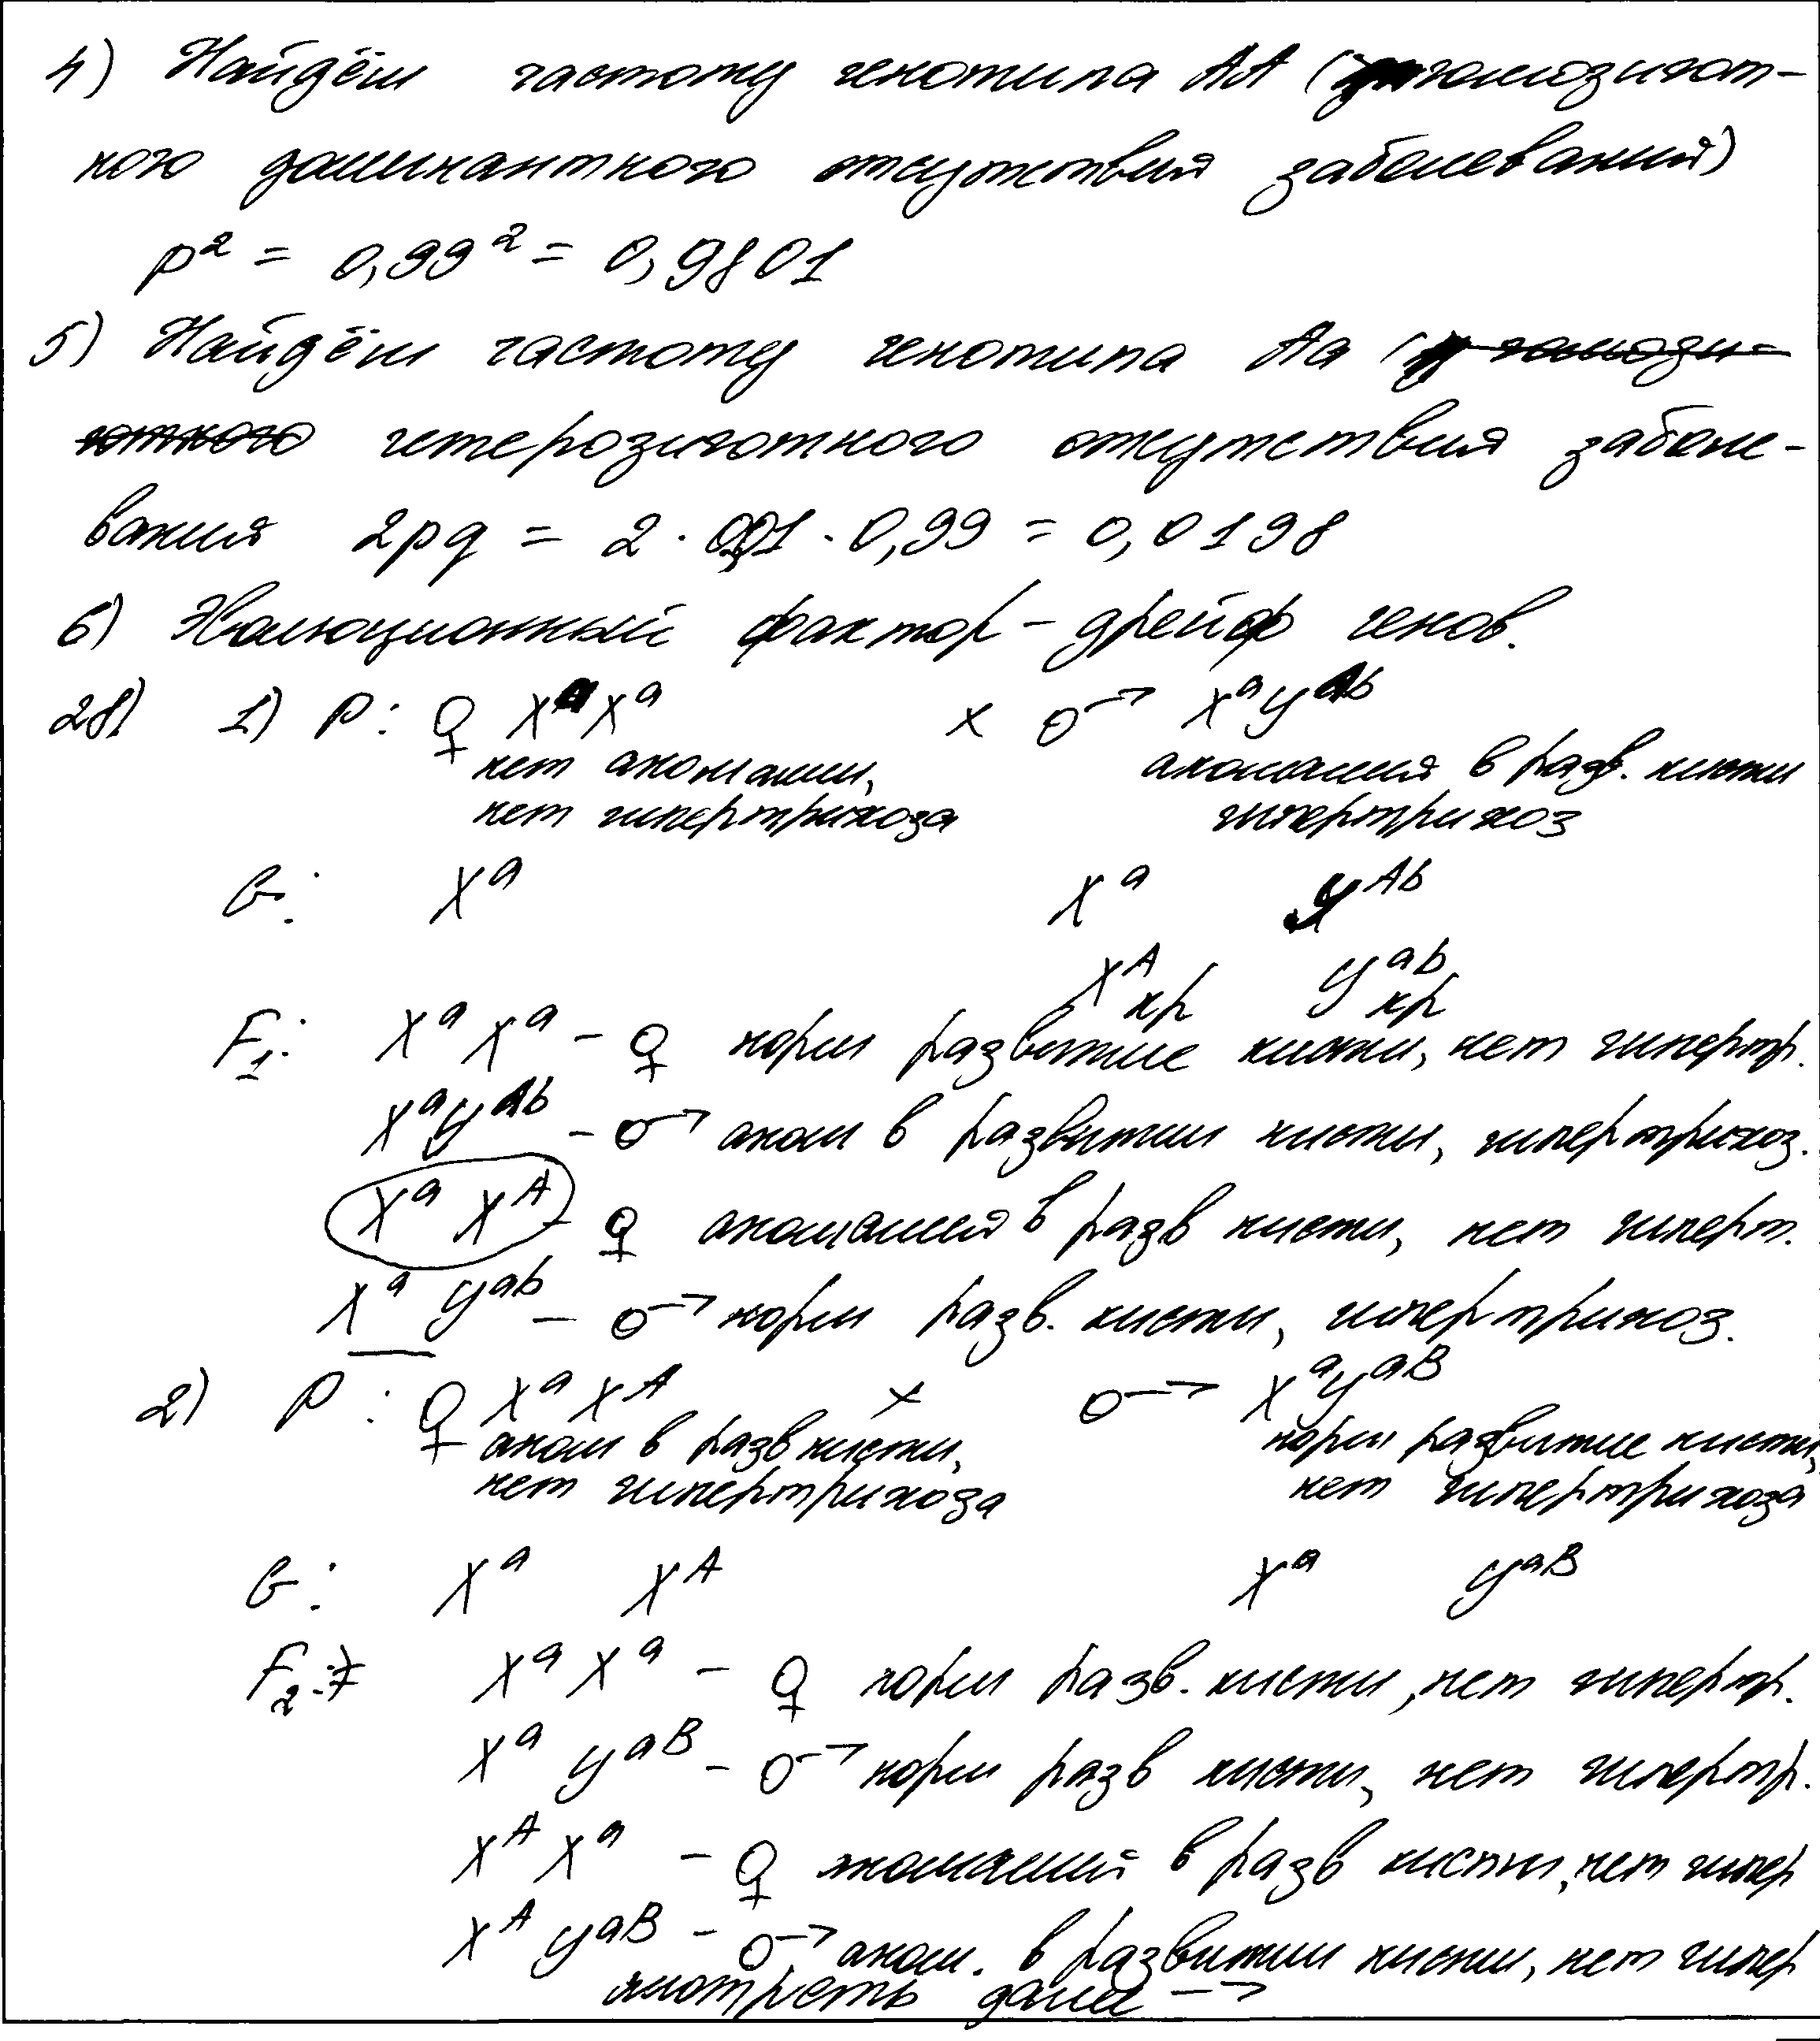 4) Найдём частоту генотипа AA (гомозигот-
ного доминантного отсутствия заболеваний)
p² = 0,99² = 0,9801
5) Найдём частоту генотипа Aa (
гетерозиготного отсутствия заболе-
вания 2pq = 2 · 0,01 · 0,99 = 0,0198
6) Эволюционный фактор – дрейф генов.
28) 1) P: ♀ XᵃXᵃ × ♂ XᵃYᴬᵇ
нет аномалии, аномалия в разв. кисти
нет гипертрихоза гипертрихоз
G: Xᵃ Xᵃ Yᴬᵇ
Xᴬ кр Yᵃᵇ кр
F₁: XᵃXᵃ – ♀ норм развитие кисти, нет гипертр.
XᵃYᴬᵇ – ♂ аном в развитии кисти, гипертрихоз.
XᵃXᴬ – ♀ аномалия в разв кисти, нет гиперт.
XᵃYᵃᵇ – ♂ норм разв. кисти, гипертрихоз.
2) P: ♀ XᵃXᴬ × ♂ XᵃYᵃᴮ
аном в разв кисти, норм развитие кисти,
нет гипертрихоза нет гипертрихоза
G: Xᵃ Xᴬ Xᵃ Yᵃᴮ
F₂: XᵃXᵃ – ♀ норм разв. кисти, нет гипертр.
XᵃYᵃᴮ – ♂ норм разв кисти, нет гипертр.
XᴬXᵃ – ♀ аномалий в разв кисти, нет гипер
XᴬYᵃᴮ – ♂ аном. в развитии кисти, нет гипер
смотреть далее →